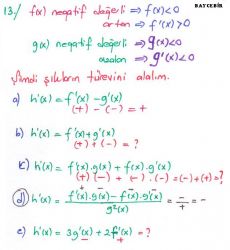 BAYCEBİR
13/ f(x) negatif değerli ⇒ f(x)<0
artan ⇒ f'(x)>0
g(x) negatif değerli ⇒ g(x)<0
azalan ⇒ g'(x)<0
Şimdi şıkların türevini alalım.
a) h'(x) = f'(x) - g'(x)
(+) - (-) = +
b) h'(x) = f'(x) + g'(x)
(+) + (-) = ?
c) h'(x) = f'(x).g(x) + f(x).g'(x)
(+) (-) + (-).(-) = (-)+(+) = ?
d) h'(x) = f'(x).g(x) - f(x).g'(x) / g²(x) = - / + = -
e) h'(x) = 3g'(x) + 2f'(x) = ?
- +